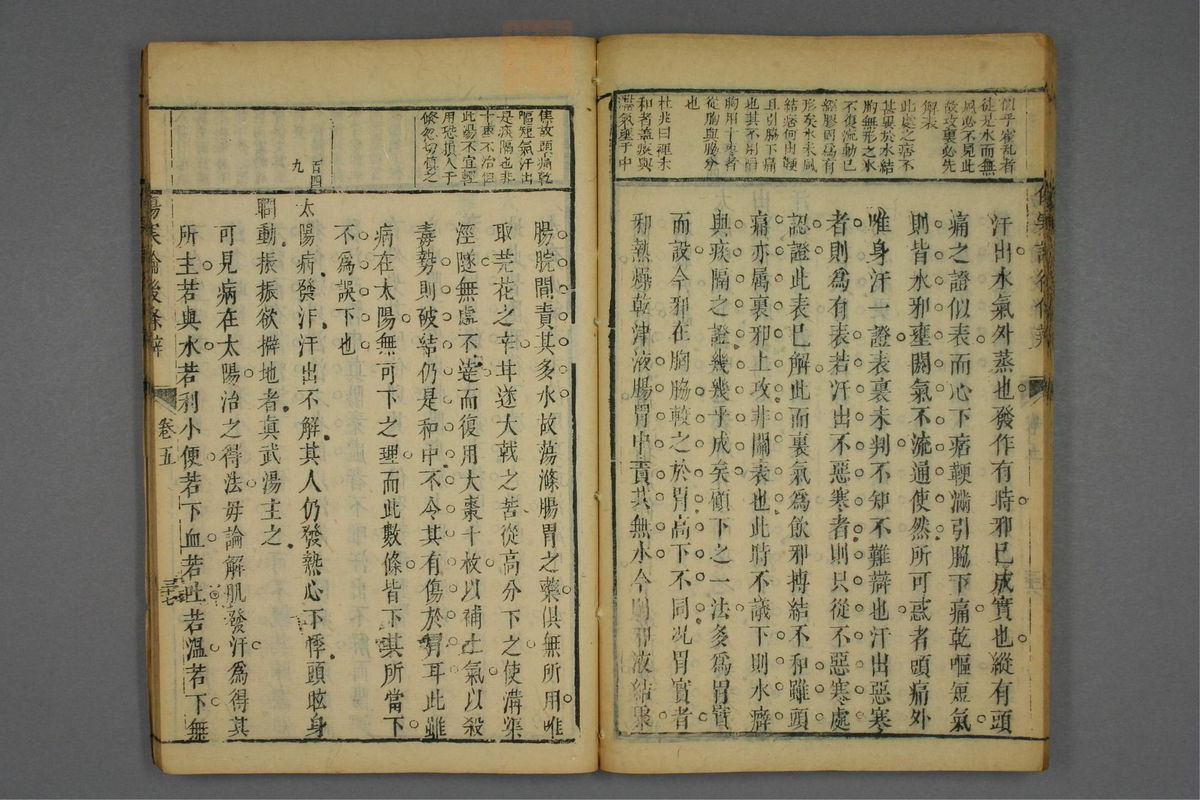 汗出水氣外蒸也發作有時邪已成實也縱有頭
痛之證似表而心下痞鞕滿引脇下痛乾嘔短氣
則皆水邪壅闕氣不流通使然所可惑者頭痛外
唯身汗一證表裏未判不知不難辯也汗出惡寒
者則爲有表若汗出不惡寒者則只從不惡寒處
認證此表已解此而裏氣爲飲邪搏結不和雖頭
痛亦属裏邪上攻非關表也此時不議下則水癖
與痰隔之證幾幾乎成矣傾下之一法多爲胃實
而設今邪在胸脇較之於胃高下不同况胃實者
邪熱燥乾津液腸胃中責其無水今則邪液結聚
杜兆曰裡未
和者蓋痰與
燥氣壅于中
也
解表
此處之痞不
甚異於水結
胸無形之水
焦故頭痛乾
嘔短氣汗出
是痰隔也非
十棗不治但
此湯不宜輕
用恐損人于
倏忽切慎之
腸脘間責其多水故蕩滌腸胃之藥俱無所用唯
取芫花之辛甘遂大戟之苦從高分下之使溝渠
涇隧無處不達而復用大棗十枚以補土氣以殺
毒勢則破結仍是和中不令其有傷於胃耳此雖
病在太陽無可下之理而此數條皆下其所當下
不爲誤下也
百四
九
太陽病發汗汗出不解其人仍發熱心下悸頭眩身
瞤動振振欲擗地者真武湯主之
可見病在太陽治之得法毋論解肌發汗爲得其
所主若與水若利小便若下血若吐若溫若下無
傷寒論後條辨
卷五
三十七